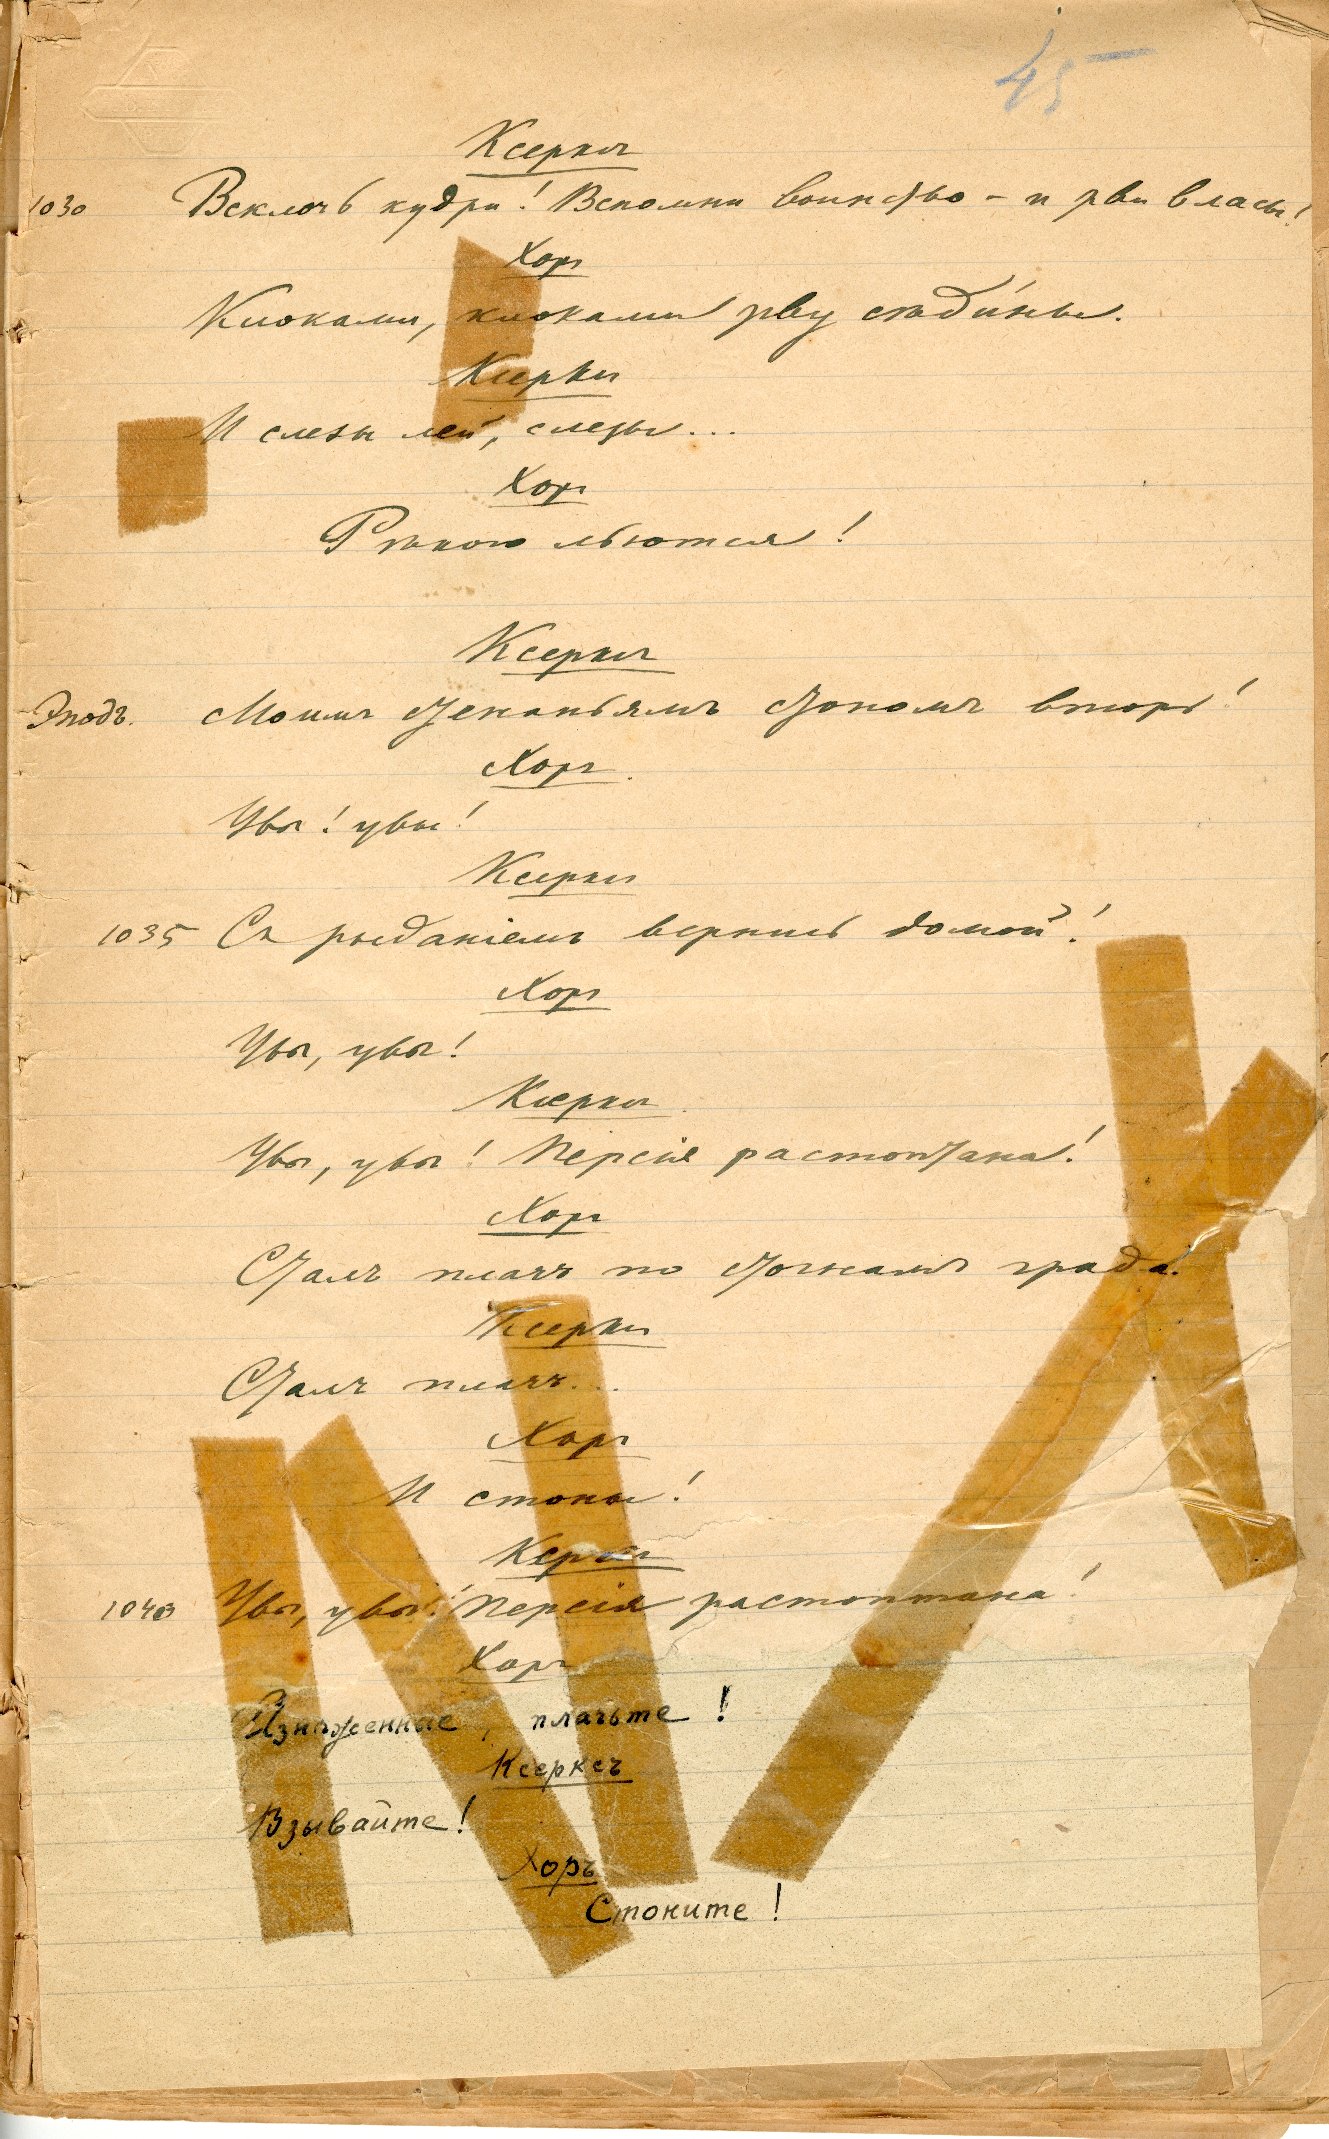 45
Ксерксъ
1030 Всклочь кудри! Вспомни воинство – и рви власы!
Хоръ
Клоками, клоками рву сѣди́ны.
Ксерксъ
И слезы лей, слезы...
Хоръ
Рѣкою льются!
Ксерксъ
Эподъ. Моимъ стенаньямъ стономъ вторь!
Хоръ.
Увы! увы!
Ксерксъ
1035 Съ рыданіемъ вернись домой!
Хоръ
Увы, увы!
Ксерксъ
Увы, увы! Персія растоптана!
Хоръ
Сталъ плачъ по стогнамъ града.
Ксерксъ
Сталъ плачъ...
Хоръ
И стоны!
Ксерксъ
1040 Увы, увы! Персія растоптана!
Хоръ
Изнѣженные, плачьте!
Ксерксъ
Взывайте!
Хоръ
Стоните!